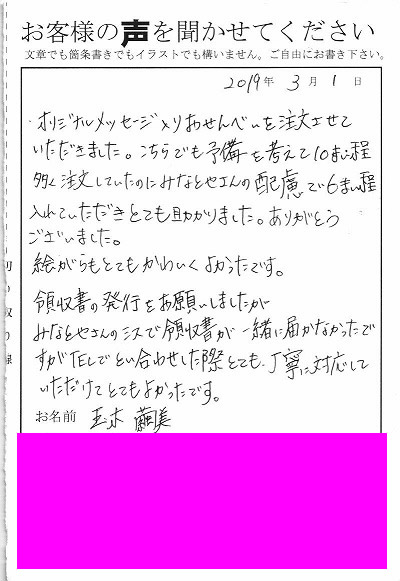 お客様の声を聞かせてください
文章でも箇条書きでもイラストでも構いません。ご自由にお書き下さい。
2019年 3月 1日
・オリジナルメッセージ入りおせんべいを注文させて
いただきました。こちらでも予備を考えて10まい程
多く注文していたのにみなとやさんの配慮で6まい程
入れていただきとても助かりました。ありがとう
ございました。
絵がらもとてもかわいくよかったです。
領収書の発行をお願いしましたが
みなとやさんのミスで領収書が一緒に届かなかったで
すがTELでとい合わせした際とても丁寧に対応して
いただけてとてもよかったです。
お名前 玉木 繭美